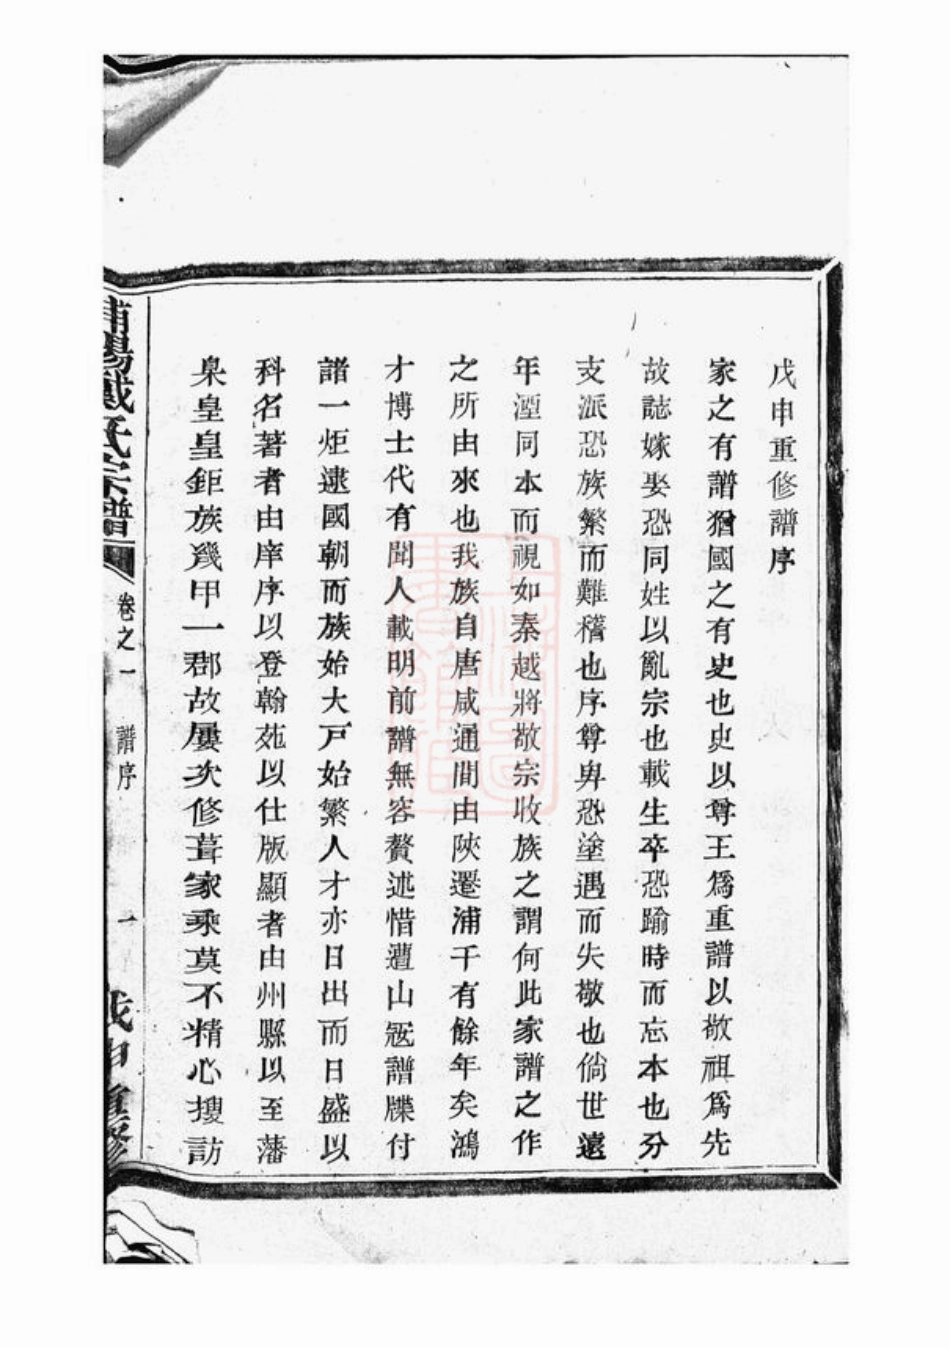 戊申重修譜序
家之有譜猶國之有史也史以尊王爲重譜以敬祖爲先
故誌嫁娶恐同姓以亂宗也載生卒恐踰時而忘本也分
支派恐族繁而難稽也序尊卑恐塗遇而失敬也倘世遠
年湮同本而視如秦越將敬宗收族之謂何此家譜之作
之所由來也我族自唐咸通間由陝遷浦千有餘年矣鴻
才博士代有聞人載明前譜無容贅述惜遭山寇譜牒付
諸一炬逮國朝而族始大戸始繁人才亦日出而日盛以
科名著者由庠序以登翰苑以仕版顯者由州縣以至藩
臬皇皇鉅族幾甲一郡故屢次修葺家乘莫不精心搜訪
浦陽戴氏宗譜 卷之一 譜序 一 戊申重修